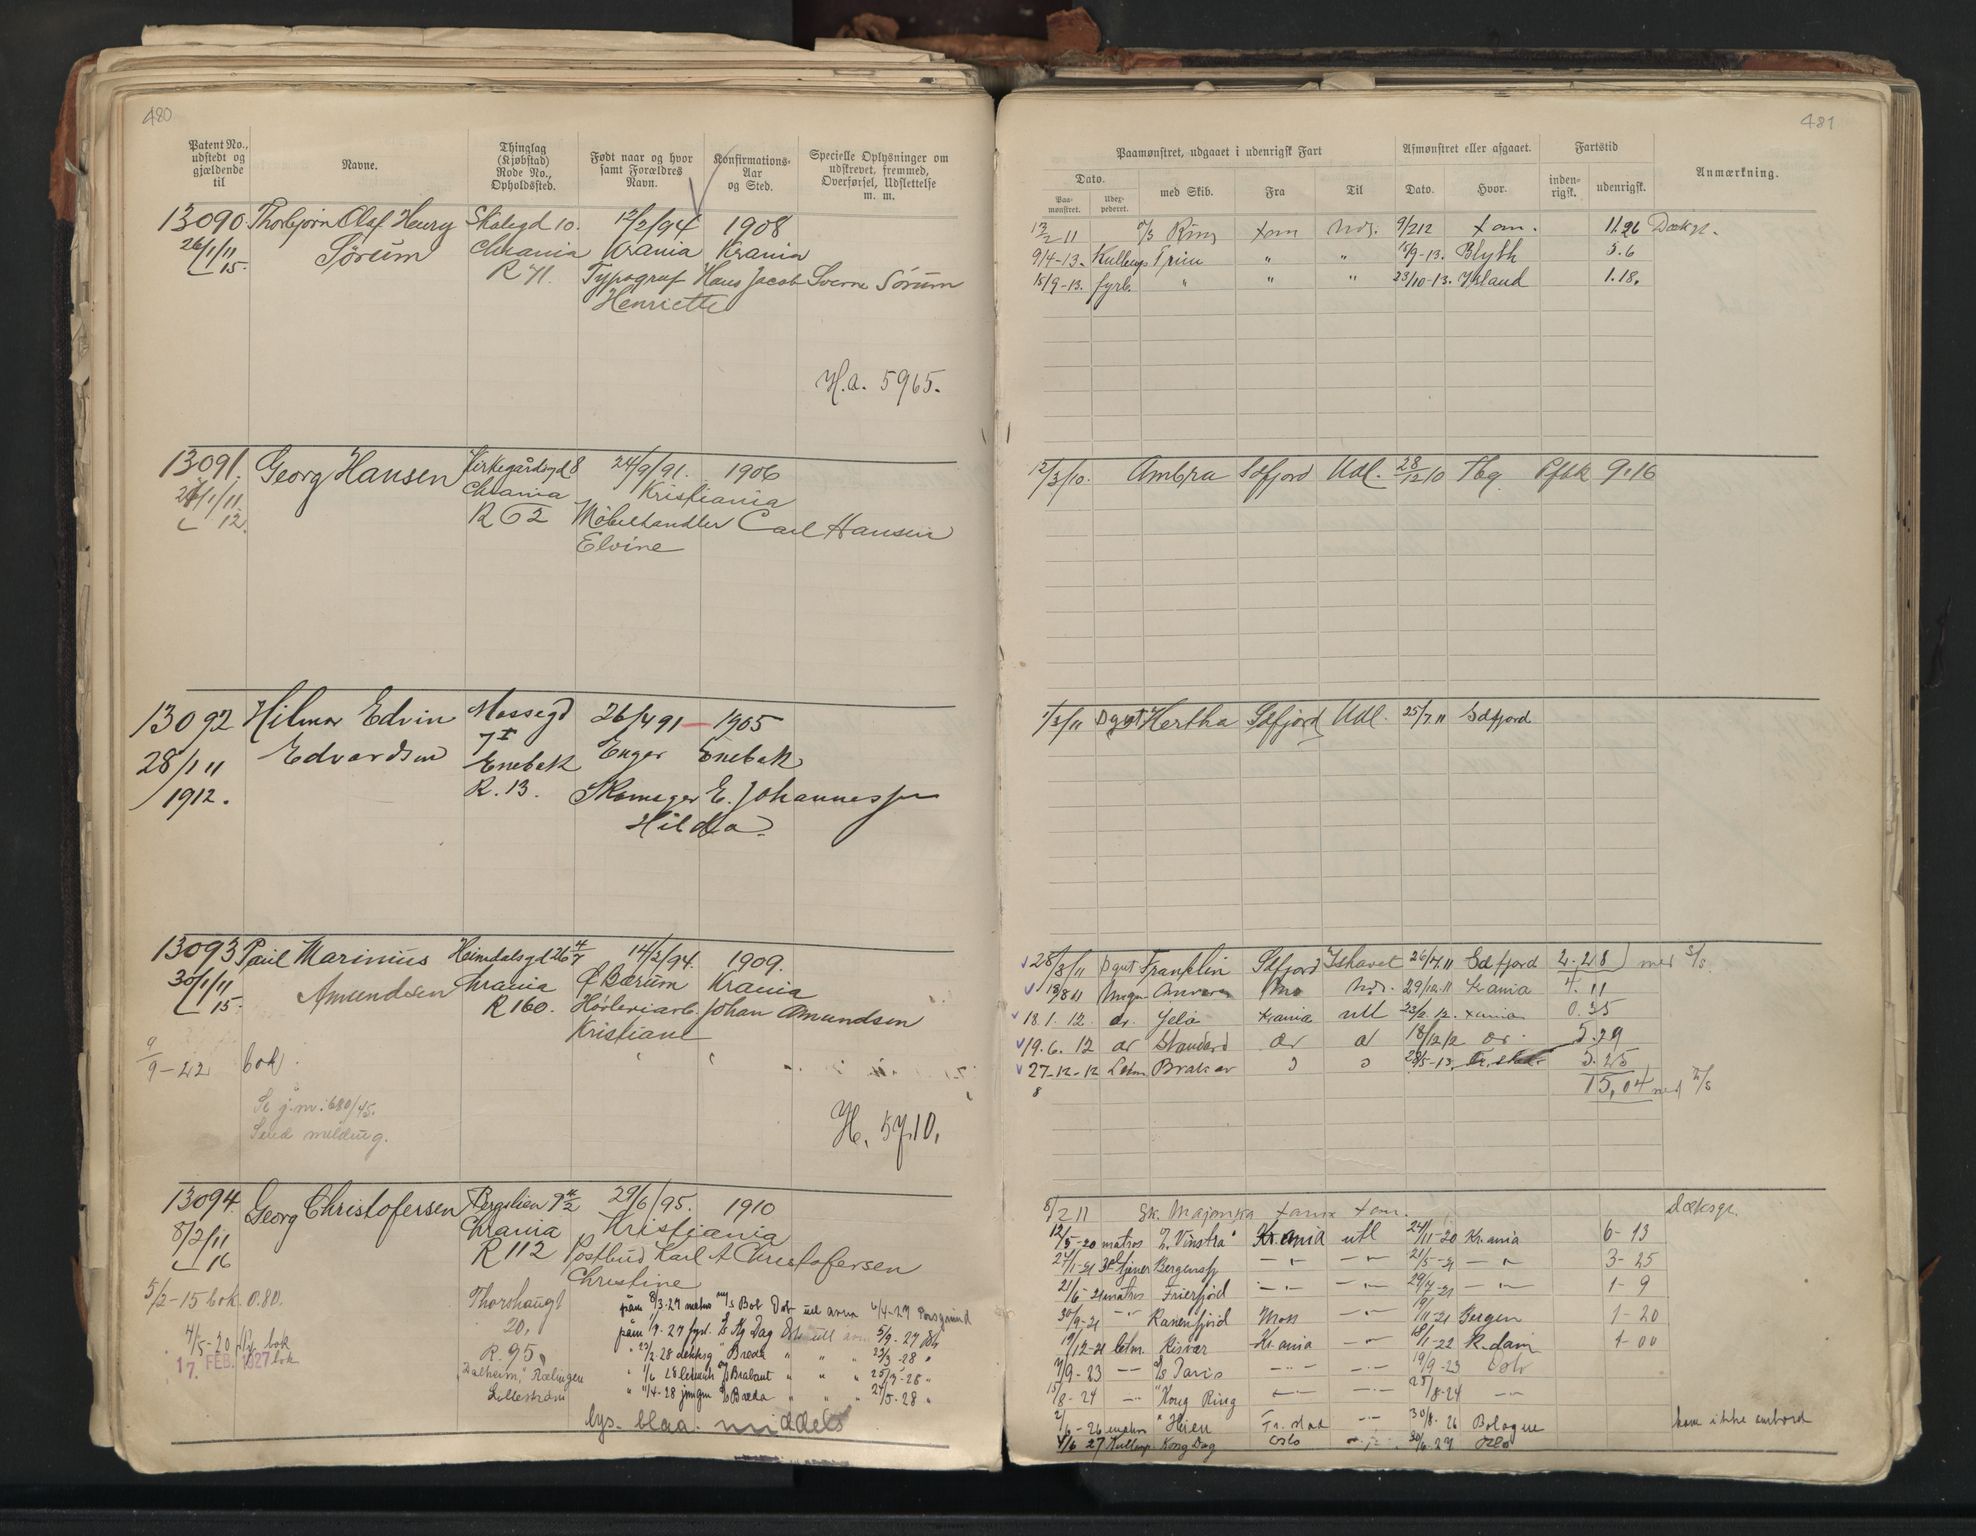 480
Patent No., udstedt og gjældende til
Navne.
Thinglag (Kjøbstad) Rode No., Opholdssted.
Født naar og hvor samt Forældres Navn.
Konfirmations- Aar og Sted.
Specielle Oplysninger om udskrevet, fremmed, Overførsel, Udslettelse m. m.
13090 Thorbjørn Olaf Henry Skalegd 10. 12/2/94 1908
26/1/11 Sørum Chrania Krania Krania
15. R 71. Typograf Hans Jacob Sverre Sørum
Henriette
H.a. 5965.
13091. Georg Hansen Kirkegårdsgd 8 24/9/91. 1906
Chrania Kristiania
12. R 62 Møbelhandler Carl Hansen
Elvine
13092 Hilmar Edvin Mossegd 26/4 91 – 1905
7 I
28/1 11 Edvardsen Enebak Enger Enebak
1912. R. 13. Skomager E. Johannessen
Hilda
13093 Paul Marinius Heimdalsgd 26 4/7 14/2/94. 1909.
30/1/11 Amundsen Chrania Ø Bærum Krania
15. R 160. Høvleriarb. Johan Amundsen
Kristiane
9/9-22 bok.
Se j.m. 680/45.
Send melding.
H. 5710.
13094 Georg Christofersen Bergslien 9 4/2 29/6/95. 1910
8/2/11 Chrania Kristiania
16 R 112 Postbud Karl A Christofersen
Christine
5/2-15 bok 0.80. Thorshaugt 20.
4/5-20 bok R. 95
17. FEB. 1927 bok
påm 8/3.27 matros m/s Bob Oslo utl avm 6/4-27 Porsgrund
påm 1/9-27 fyrb. Kg Dag Oslo utl avm 5/9-27
23/2-28 dekksg " Breda " " " 23/3-28 "
Brabant " " " 25/3-28 "
11/4-28 jmgn Breda " " " 24/5-28 "
Lillestrøm
lys. blaa. middels
481
Paamønstret, udgaaet i udenrigsk Fart
Afmønstret eller afgaaet.
Fartstid
Anmærkning.
Dato. med Skib. Fra Til Dato. Hvor. inden- rigsk. udenrigsk.
Paa- mønstret. Udex- pederet.
13/2 11 Ring xam Nds. 9/2 12 xam. 11.26 Dæksg.
9/4-13. Kullemp Trim " " 15/9-13. Blyth 5.6
15/9-13. fyrb. " " " 23/10-13. Ysland 1.18.
12/3/10. Ambra Sdfjord Udl. 28/12 10 Tbg 9.16
1/3/11 Dgut Hertha Sdfjord Udl. 25/7.11 Sdfjord
28/8/11 Dgut Franklin Sdfjord Ishavet 26/7.11 Sdfjord 2.28 med S/S
18/8 11 Nds. 29/12.11 Krania 4.11
18.1.12. or. Jelø Krania utl 23/2.12. xania 0.35
19.6.12 or Standard or 18/12 12 or 5.29
27-12-12 Letm Braker 28/5-13 Fr.stad 5.25
15,04 med S/S
8/2 11 Sk. Majorka xania xam. Dæksgt.
12/5-20 matros "Vinstra" Kr.ania utl 24/11-20 Kr.ania 6-13
Bergensfj 21/5-21 3-25
21/6-21 matros Frierfjord 29/7-21 1-9
30/9-21 Ranenfjord Moss 19/11-21 Bergen 1-20
19/12-21 letm. Risvær Kr.ania 18/1-22 R.dam 1-00
7/9-23 Paris 19/9-23 Oslo
15/8-24 "Kong Ring 25/8-24
2/6-26 matros Fr.stad 30/8.26 Bologne kom ikke ombord
4/6 27 Kullemp. Kong Dag Oslo 30/6-27 Oslo